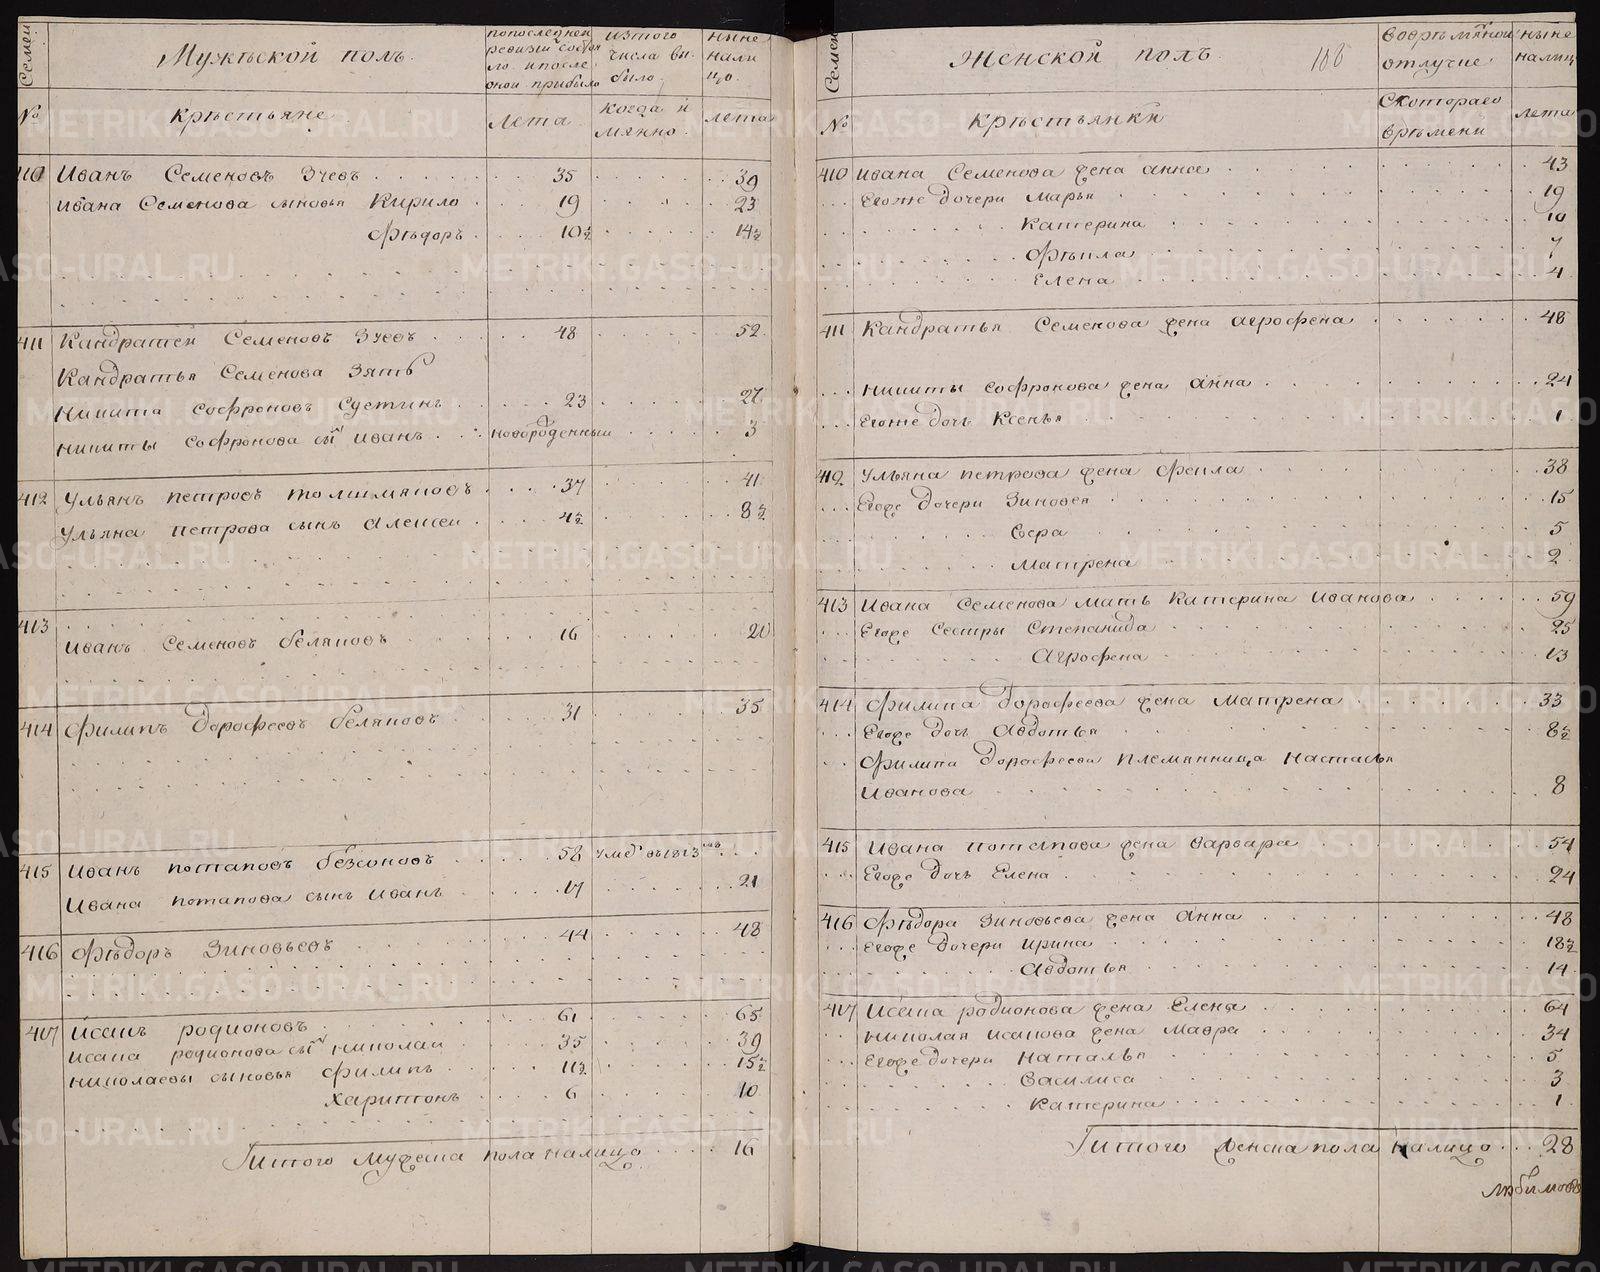 Семеи
Мужъской полъ.
попоследней ревизии состояло ипосле оной прибыло
изтого числа выбыло.
ныне налицо.
№
кръстьяне
лета
когда и мянно.
лета
410 Иванъ Семеновъ Зуевъ 35 39
Ивана Семенова сыновья Кирило 19 23
Фъдоръ 10½ 14½
411 Кандратей Семеновъ Зуевъ 48 52
Кандратья Семенова Зять
никита софроновъ 23 27
никиты софронова сынъ иванъ новорожденный 3
412 Ульянъ петровъ 37 41
Ульяна петрова сынъ алексеи 4½ 8½
413
иванъ Семеновъ беляковъ 16 20
414 Филипъ дорофеевъ беляковъ 31 35
415 Иванъ потаповъ безсоновъ 58 умеръ въ1813
Ивана потапова сынъ иванъ 17 21
416 Фъдоръ Зиновьевъ 44 48
417 Исакъ родионовъ 61 65
исака родионова сынъ николаи 35 39
николаевы сыновья филипъ 11½ 15½
харитонъ 6 10
Итого мужеска пола налицо 16
Семеи
Женской полъ.
188
вовръмянной отлучке
ныне налицо
№
кръстьянки
Скотораго връмени
лета
410 ивана Семенова жена анна 43
Егоже дочери марья 19
катерина 10
Фъкла 7
Елена 4
411 Кандратья Семенова жена агрофена 48
никиты софронова жена анна 24
Егоже дочь Ксенья 1
412 Ульяна петрова жена фекла 38
Егоже дочери Зиновея 15
вера 5
матрена 2
413 Ивана Семенова мать катерина иванова 59
Егоже сестры степанида 25
агрофена 13
414 Филипа дорофеева жена матрена 33
Егоже дочь авдотья 8½
филипа дорофеева племянница настасья
иванова 8
415 Ивана потапова жена варвара 54
Егоже дочь Елена 24
416 Фъдора зиновьева жена анна 48
Егоже дочери ирина 18½
авдотья 14
417 Исака родионова жена Елена 64
николая исакова жена мавра 34
Егоже дочери наталья 5
василиса 3
катерина 1
Итого женска пола налицо 28
любимовъ
METRIKI.GASO-URAL.RU